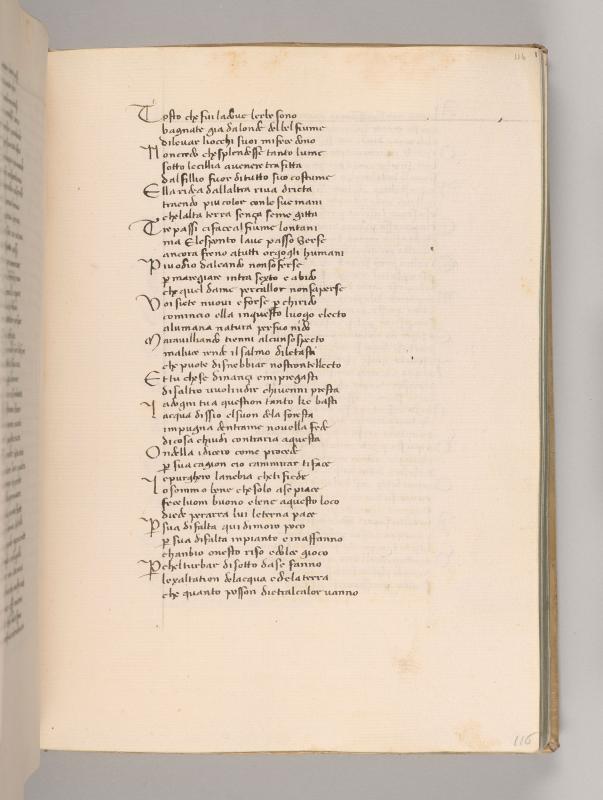 116
Tosto che fui ladove lerbe sono
bagnate gia dalonde del bel fiume
di levar liocchi suoi mi fece dono
Non credo che splendesse tanto lume
sotto le cillia avenere trafitta
dal fillio fuor di tutto suo costume
Ella ridea dallaltra riva dricta
traendo piu color con le sue mani
che lalta terra sença seme gitta
Tre passi ci facea il fiume lontani
ma Elesponto lave passo Xerse
ancora freno a tutti orgogli humani
Piu odio da leando non soferse
p mareggiare intra sexto e abido
che quel da me perc allor non saperse
Voi siete nuovi e forse p chirido
comincio ella in questo luogo electo
alumana natura per suo nido
Maravilliando tienvi alcun sospecto
ma luce rende il salmo dilectasti
che puote disnebbiar vostro ntellecto
Et tu che se dinançi e mi pregasti
di saltro vuoli udir chi venni presta
ad ogni tua question tanto ke basti
Lacqua dissio el suon dela foresta
impugna dentrame novella fede
di cosa chiudi contraria aquesta
Ondella i dicero come procede
p sua cagion cio cammirar ti face
e purghero la nebia che ti fiede
Lo sommo bene che solo a se piace
fece luom buono e bene a questo loco
diede per arra lui leterna pace
P sua difalta qui dimoro poco
p sua difalta in pianto e in affanno
chanbio onesto riso e dolce gioco
Pchel turbar di sotto da se fanno
lexaltation de lacqua e de la terra
che quanto posson dietral calor vanno
116